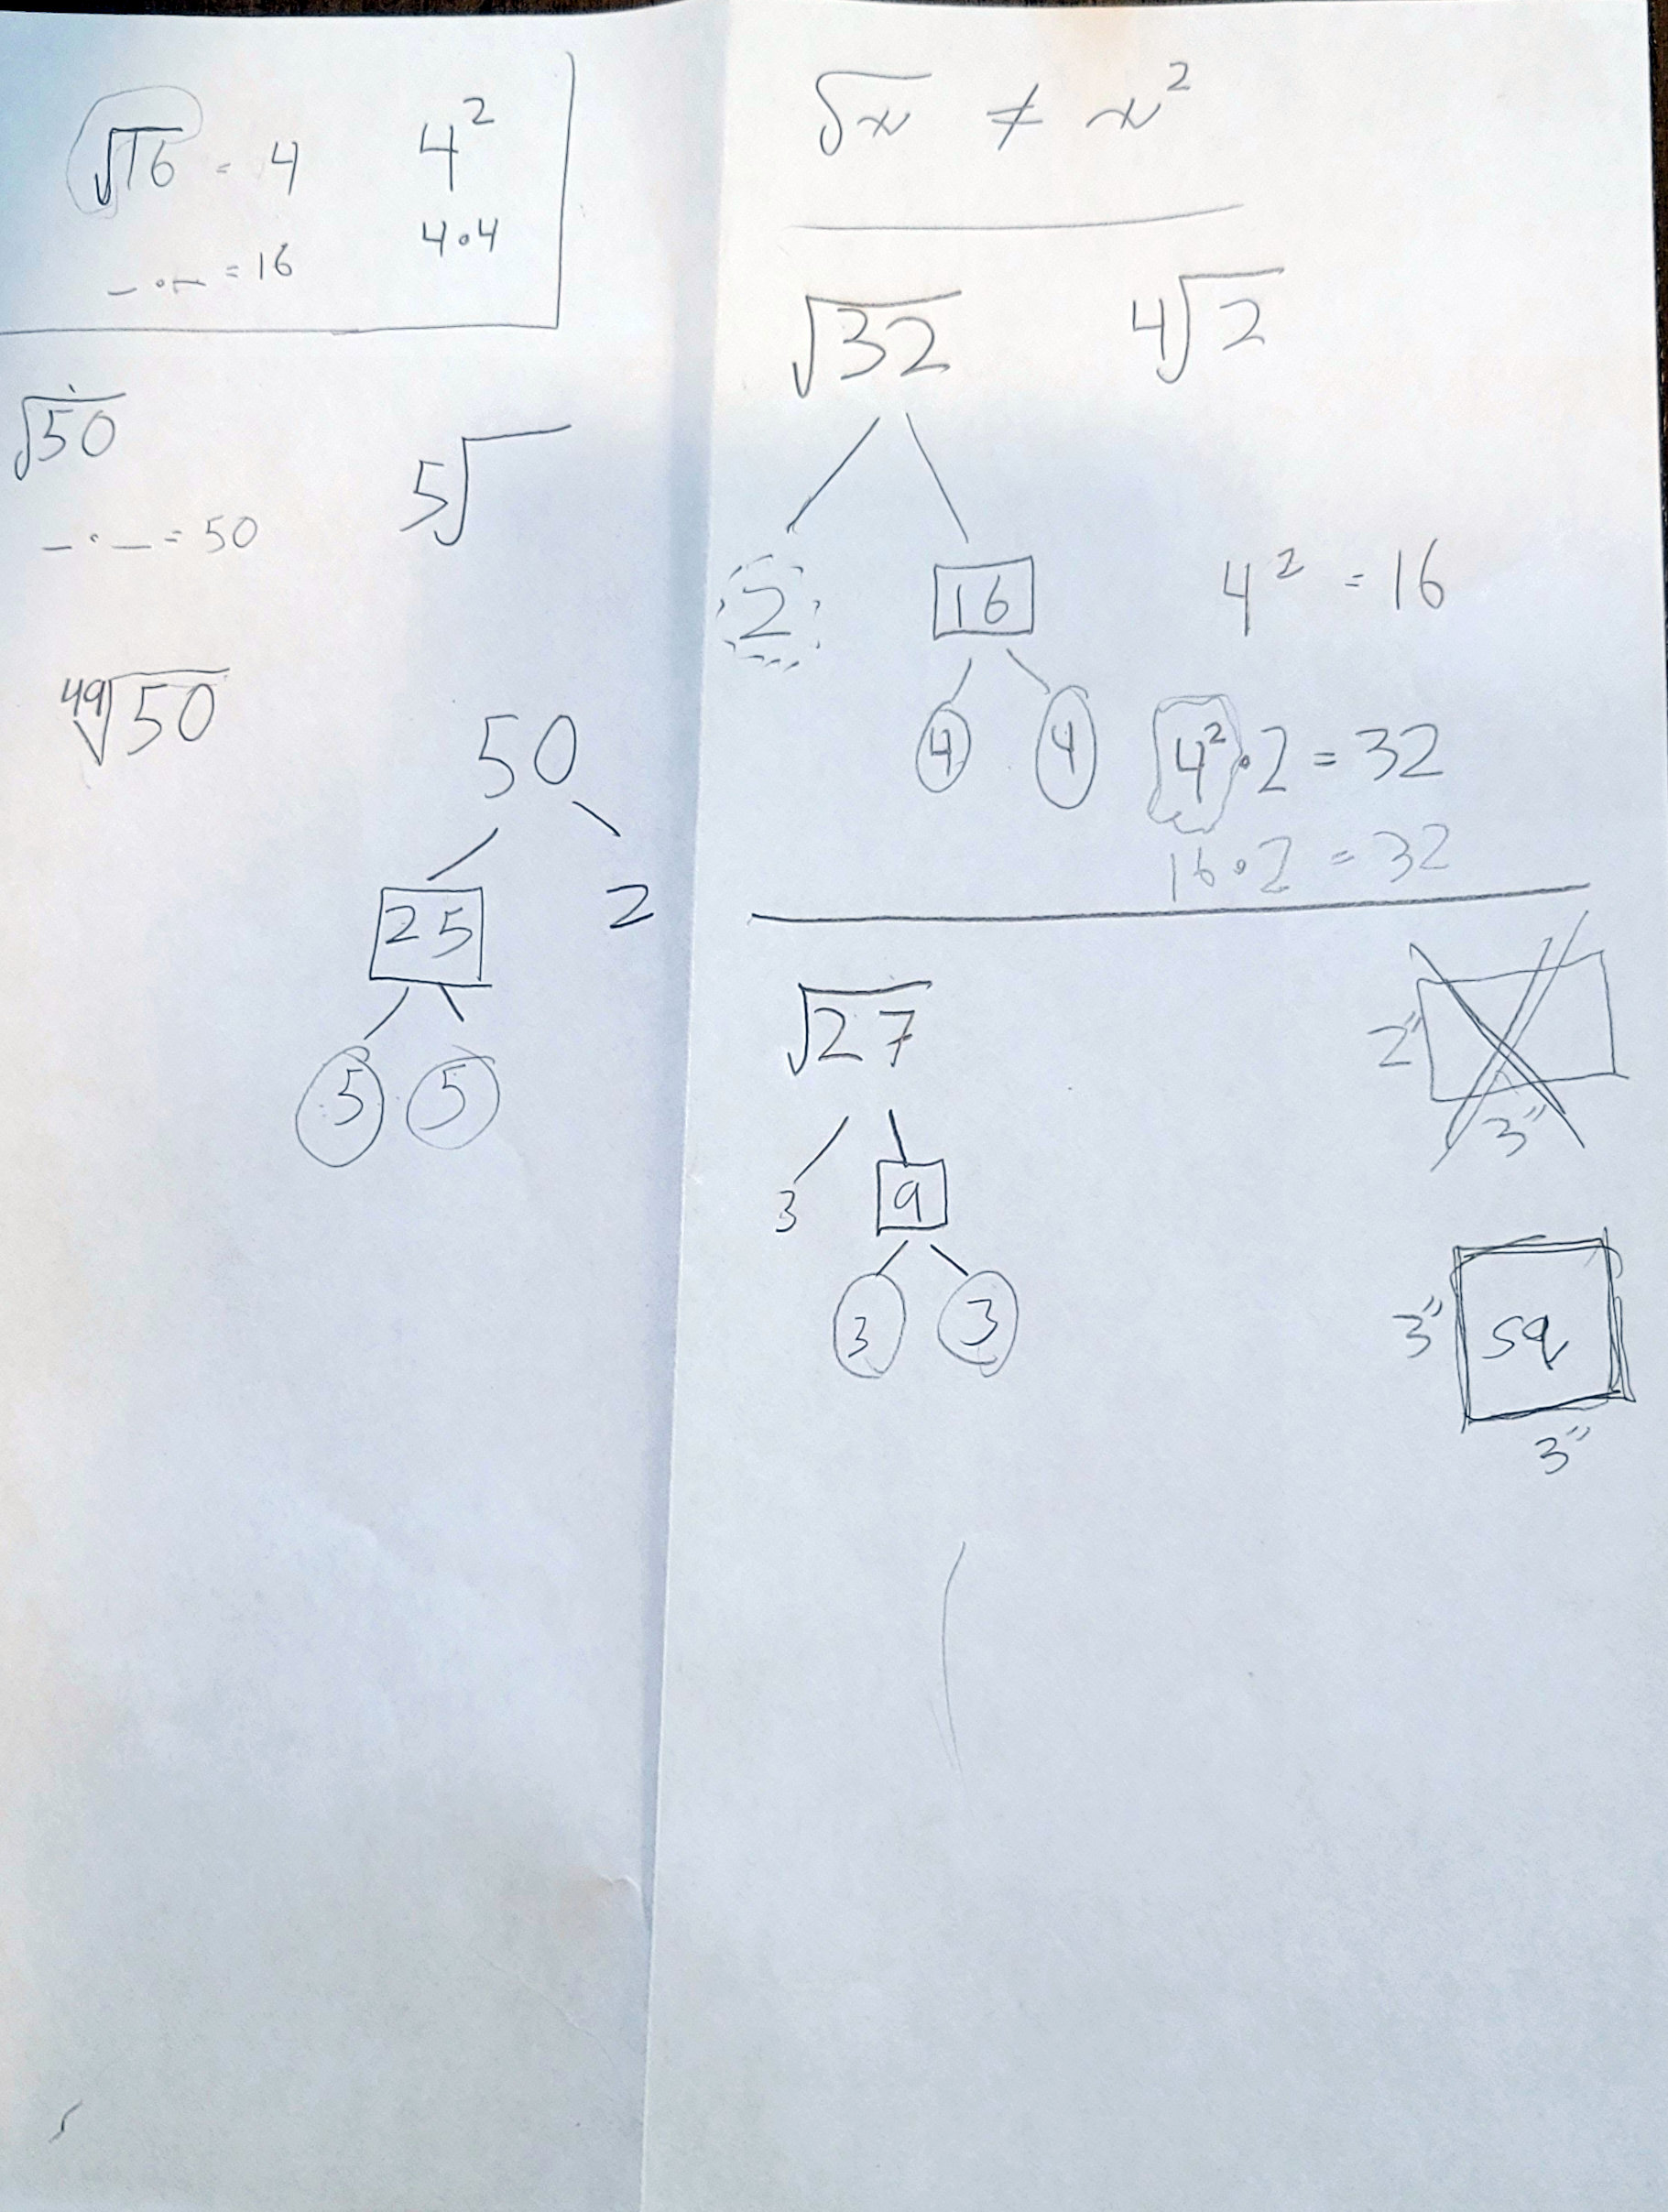 √16 = 4
4²
_ · _ = 16
4·4
√50
5√
_ · _ = 50
⁴⁹√50
50
25
2
5 5
√x ≠ x²
√32
4√2
2
16
4² = 16
4 4
4²·2 = 32
16·2 = 32
√27
3
9
3 3
2"
3"
3"
sq
3"